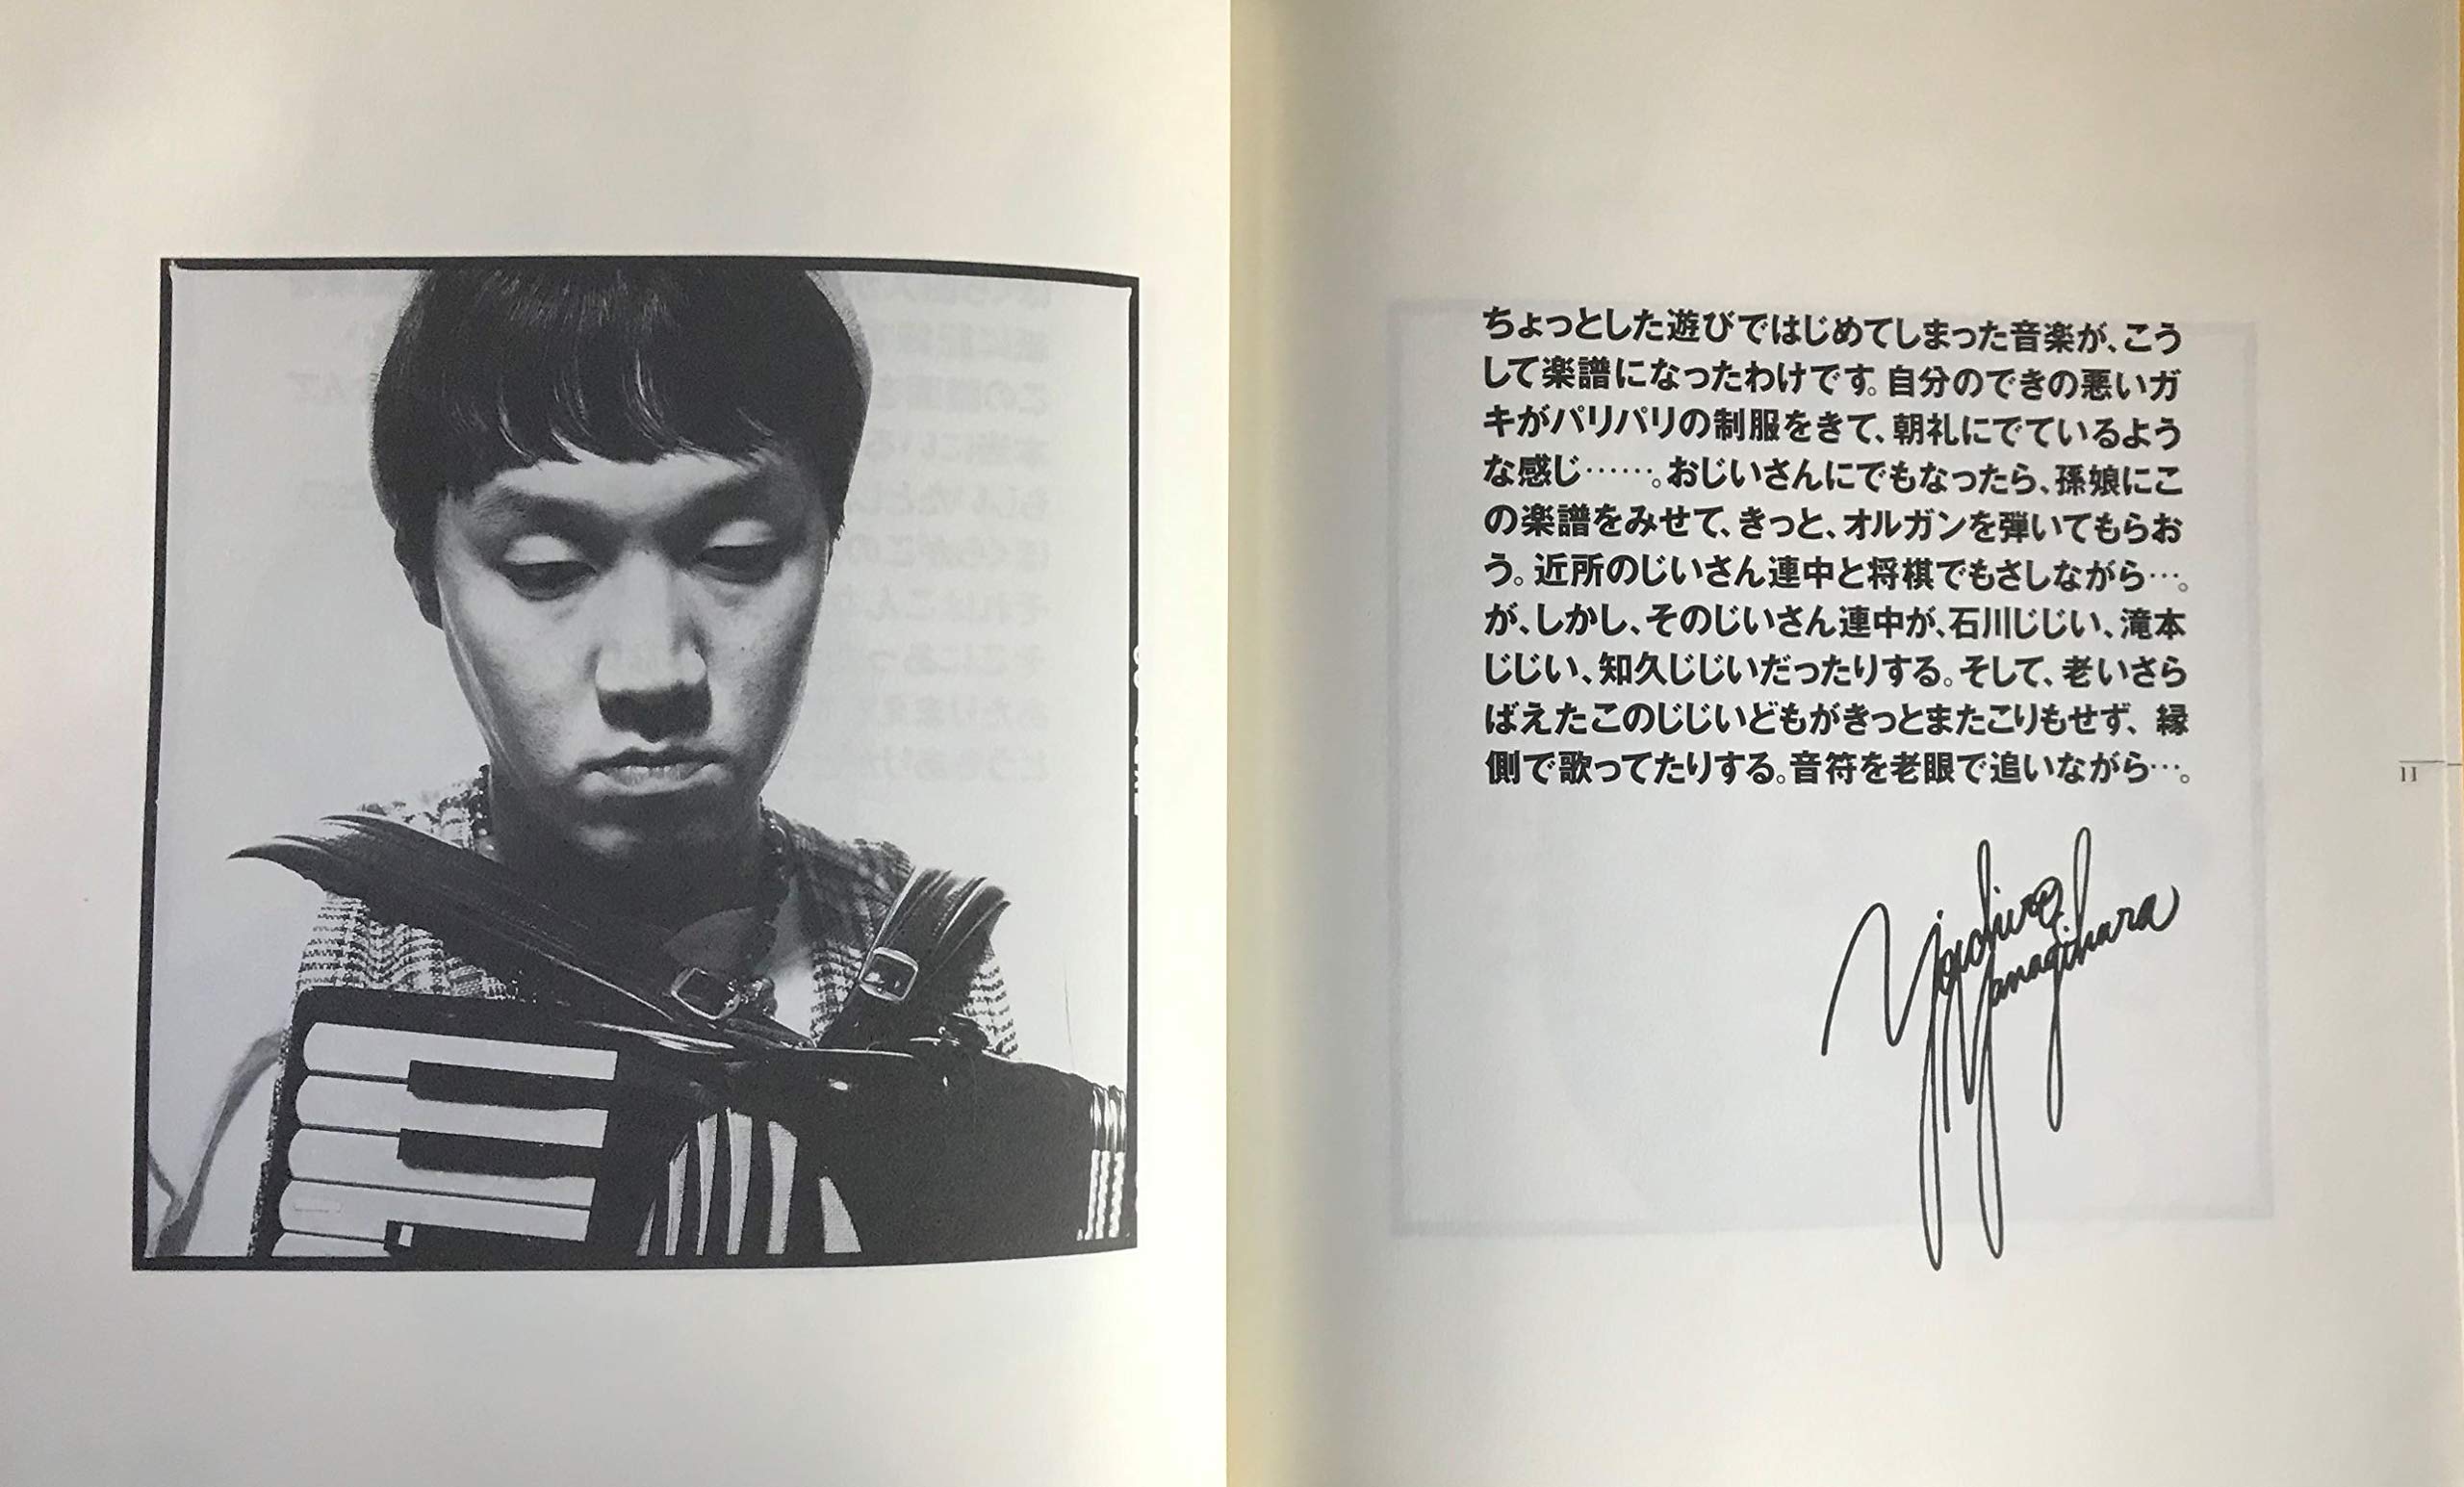 ちょっとした遊びではじめてしまった音楽が、こう
して楽譜になったわけです。自分のできの悪いガ
キがパリパリの制服をきて、朝礼にでているよう
な感じ……。おじいさんにでもなったら、孫娘にこ
の楽譜をみせて、きっと、オルガンを弾いてもらお
う。近所のじいさん連中と将棋でもさしながら…。
が、しかし、そのじいさん連中が、石川じじい、滝本
じじい、知久じじいだったりする。そして、老いさら
ばえたこのじじいどもがきっとまたこりもせず、縁
側で歌ってたりする。音符を老眼で追いながら…。
Yoichiro
Yanagihara
11